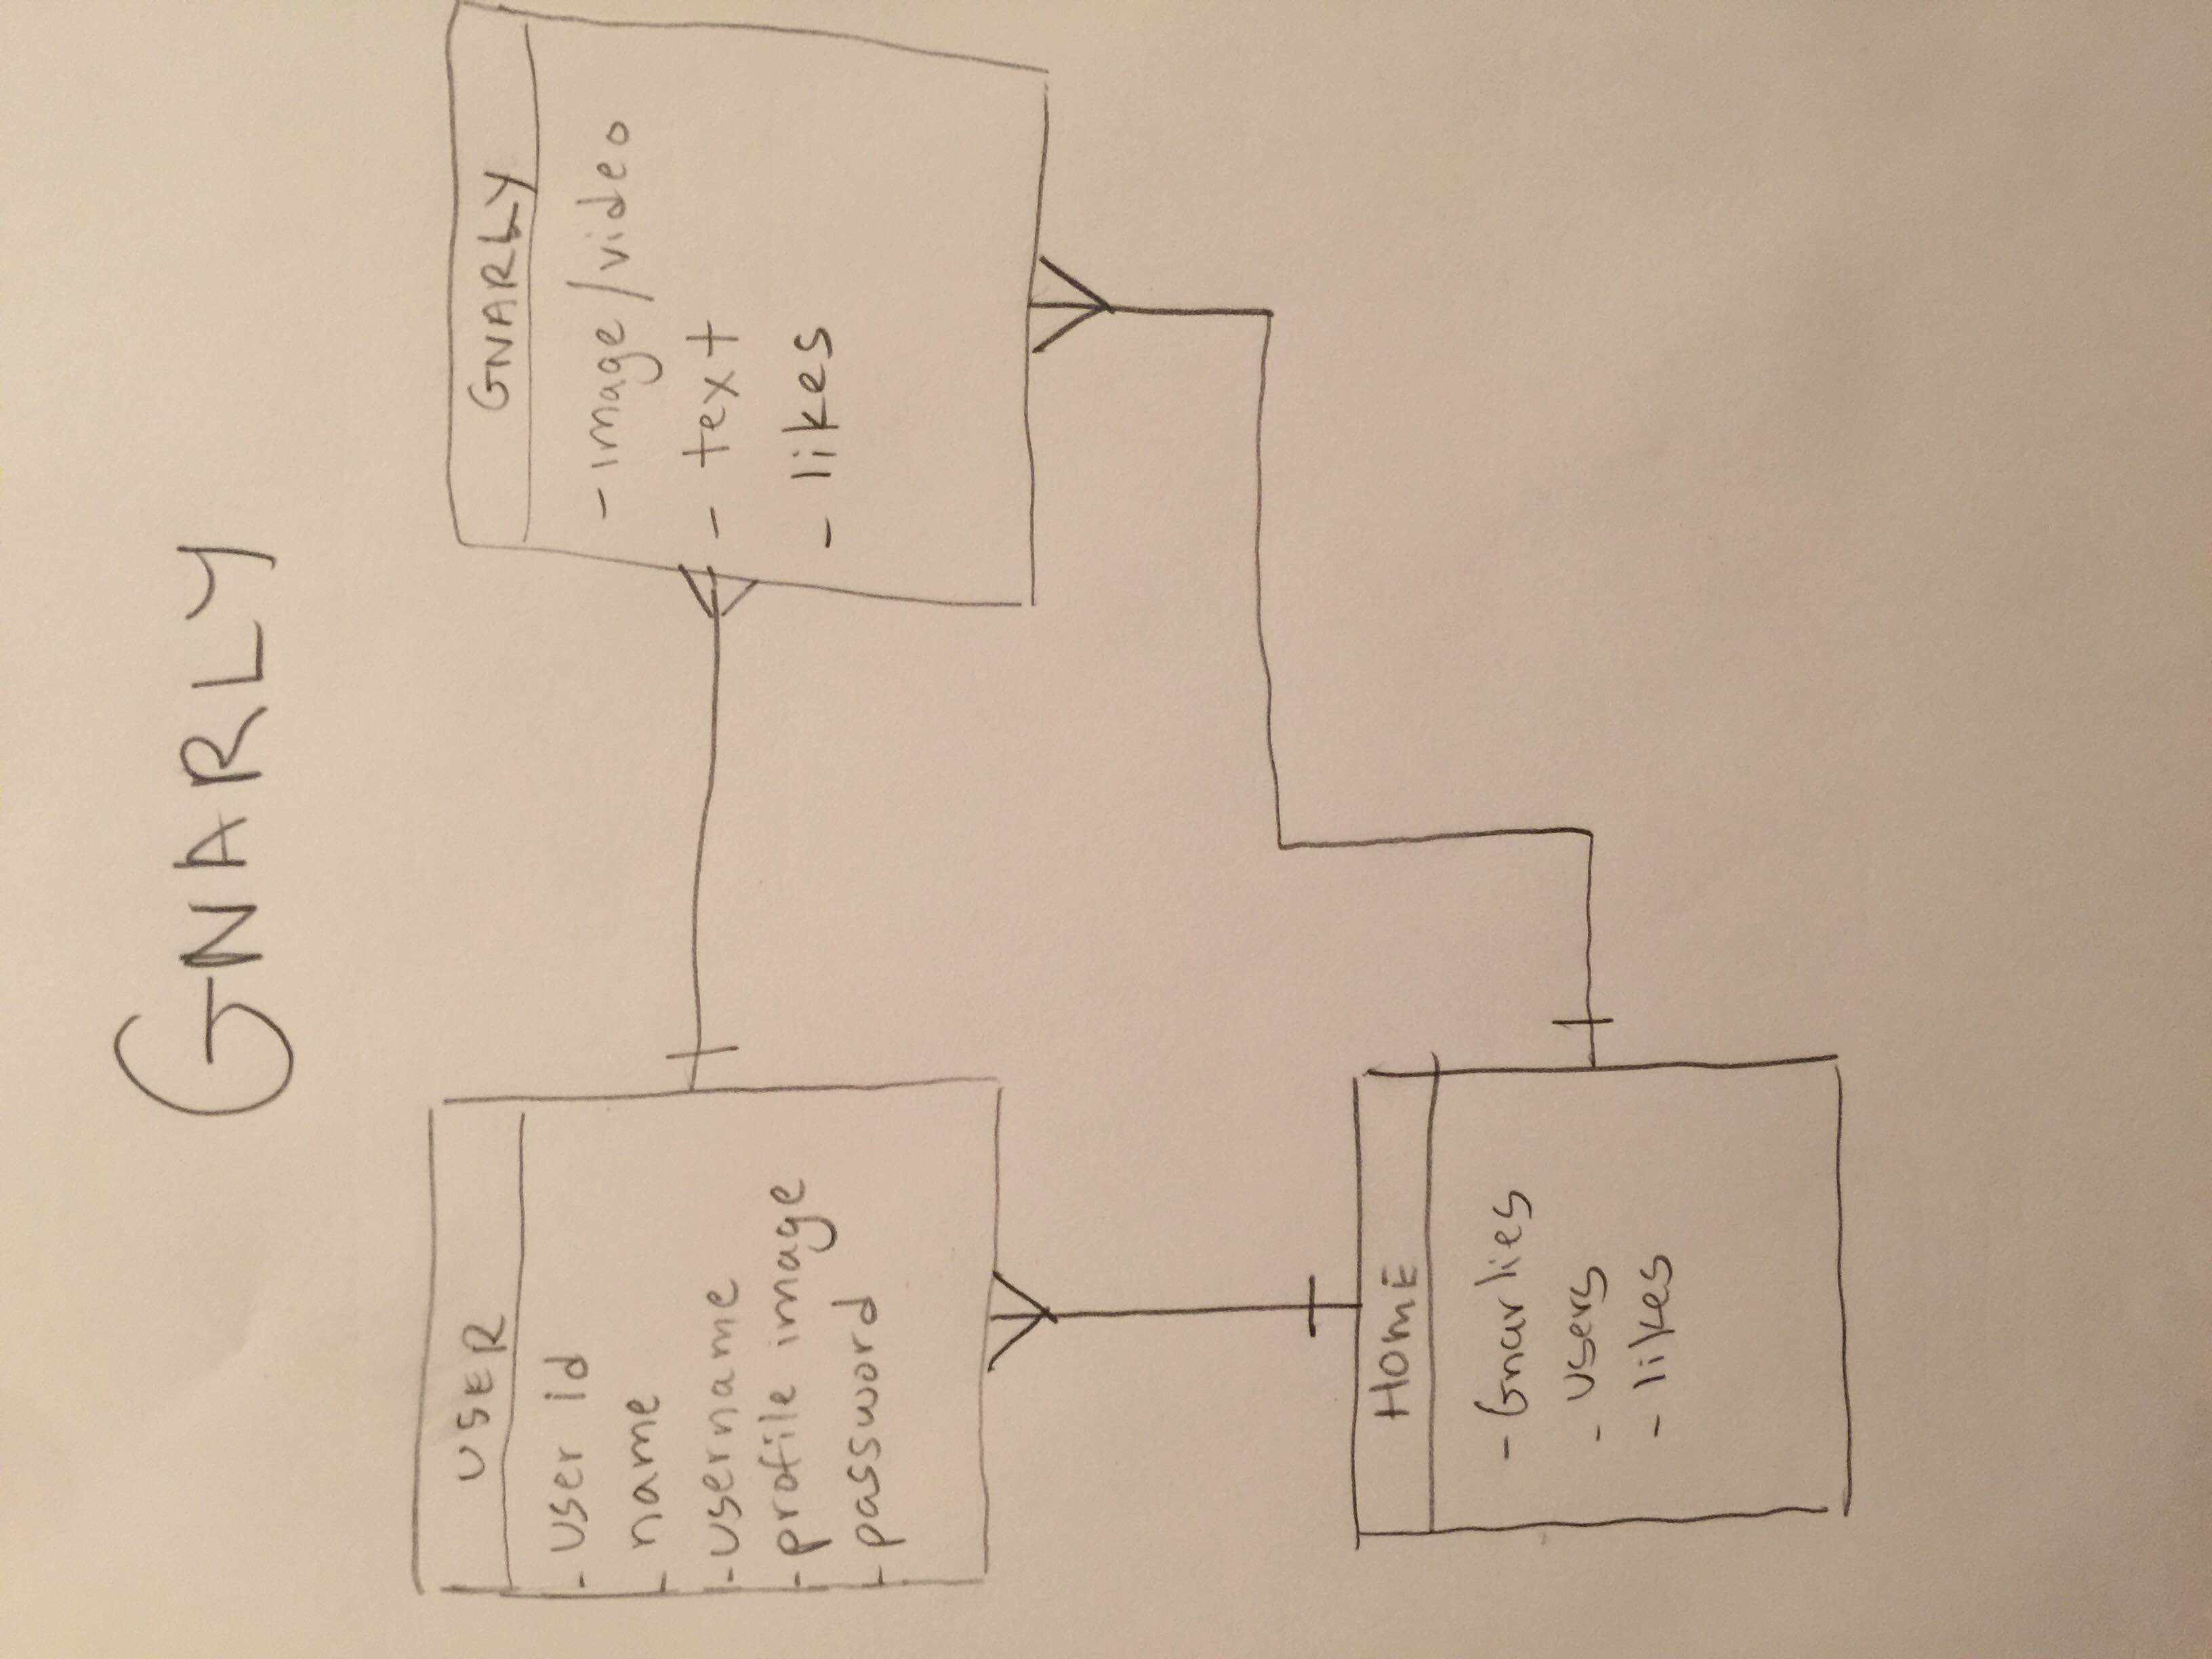 GNARLY
USER
- user id
- name
- username
- profile image
- password
GNARLY
- image/video
- text
- likes
HOME
- Gnarlies
- users
- likes